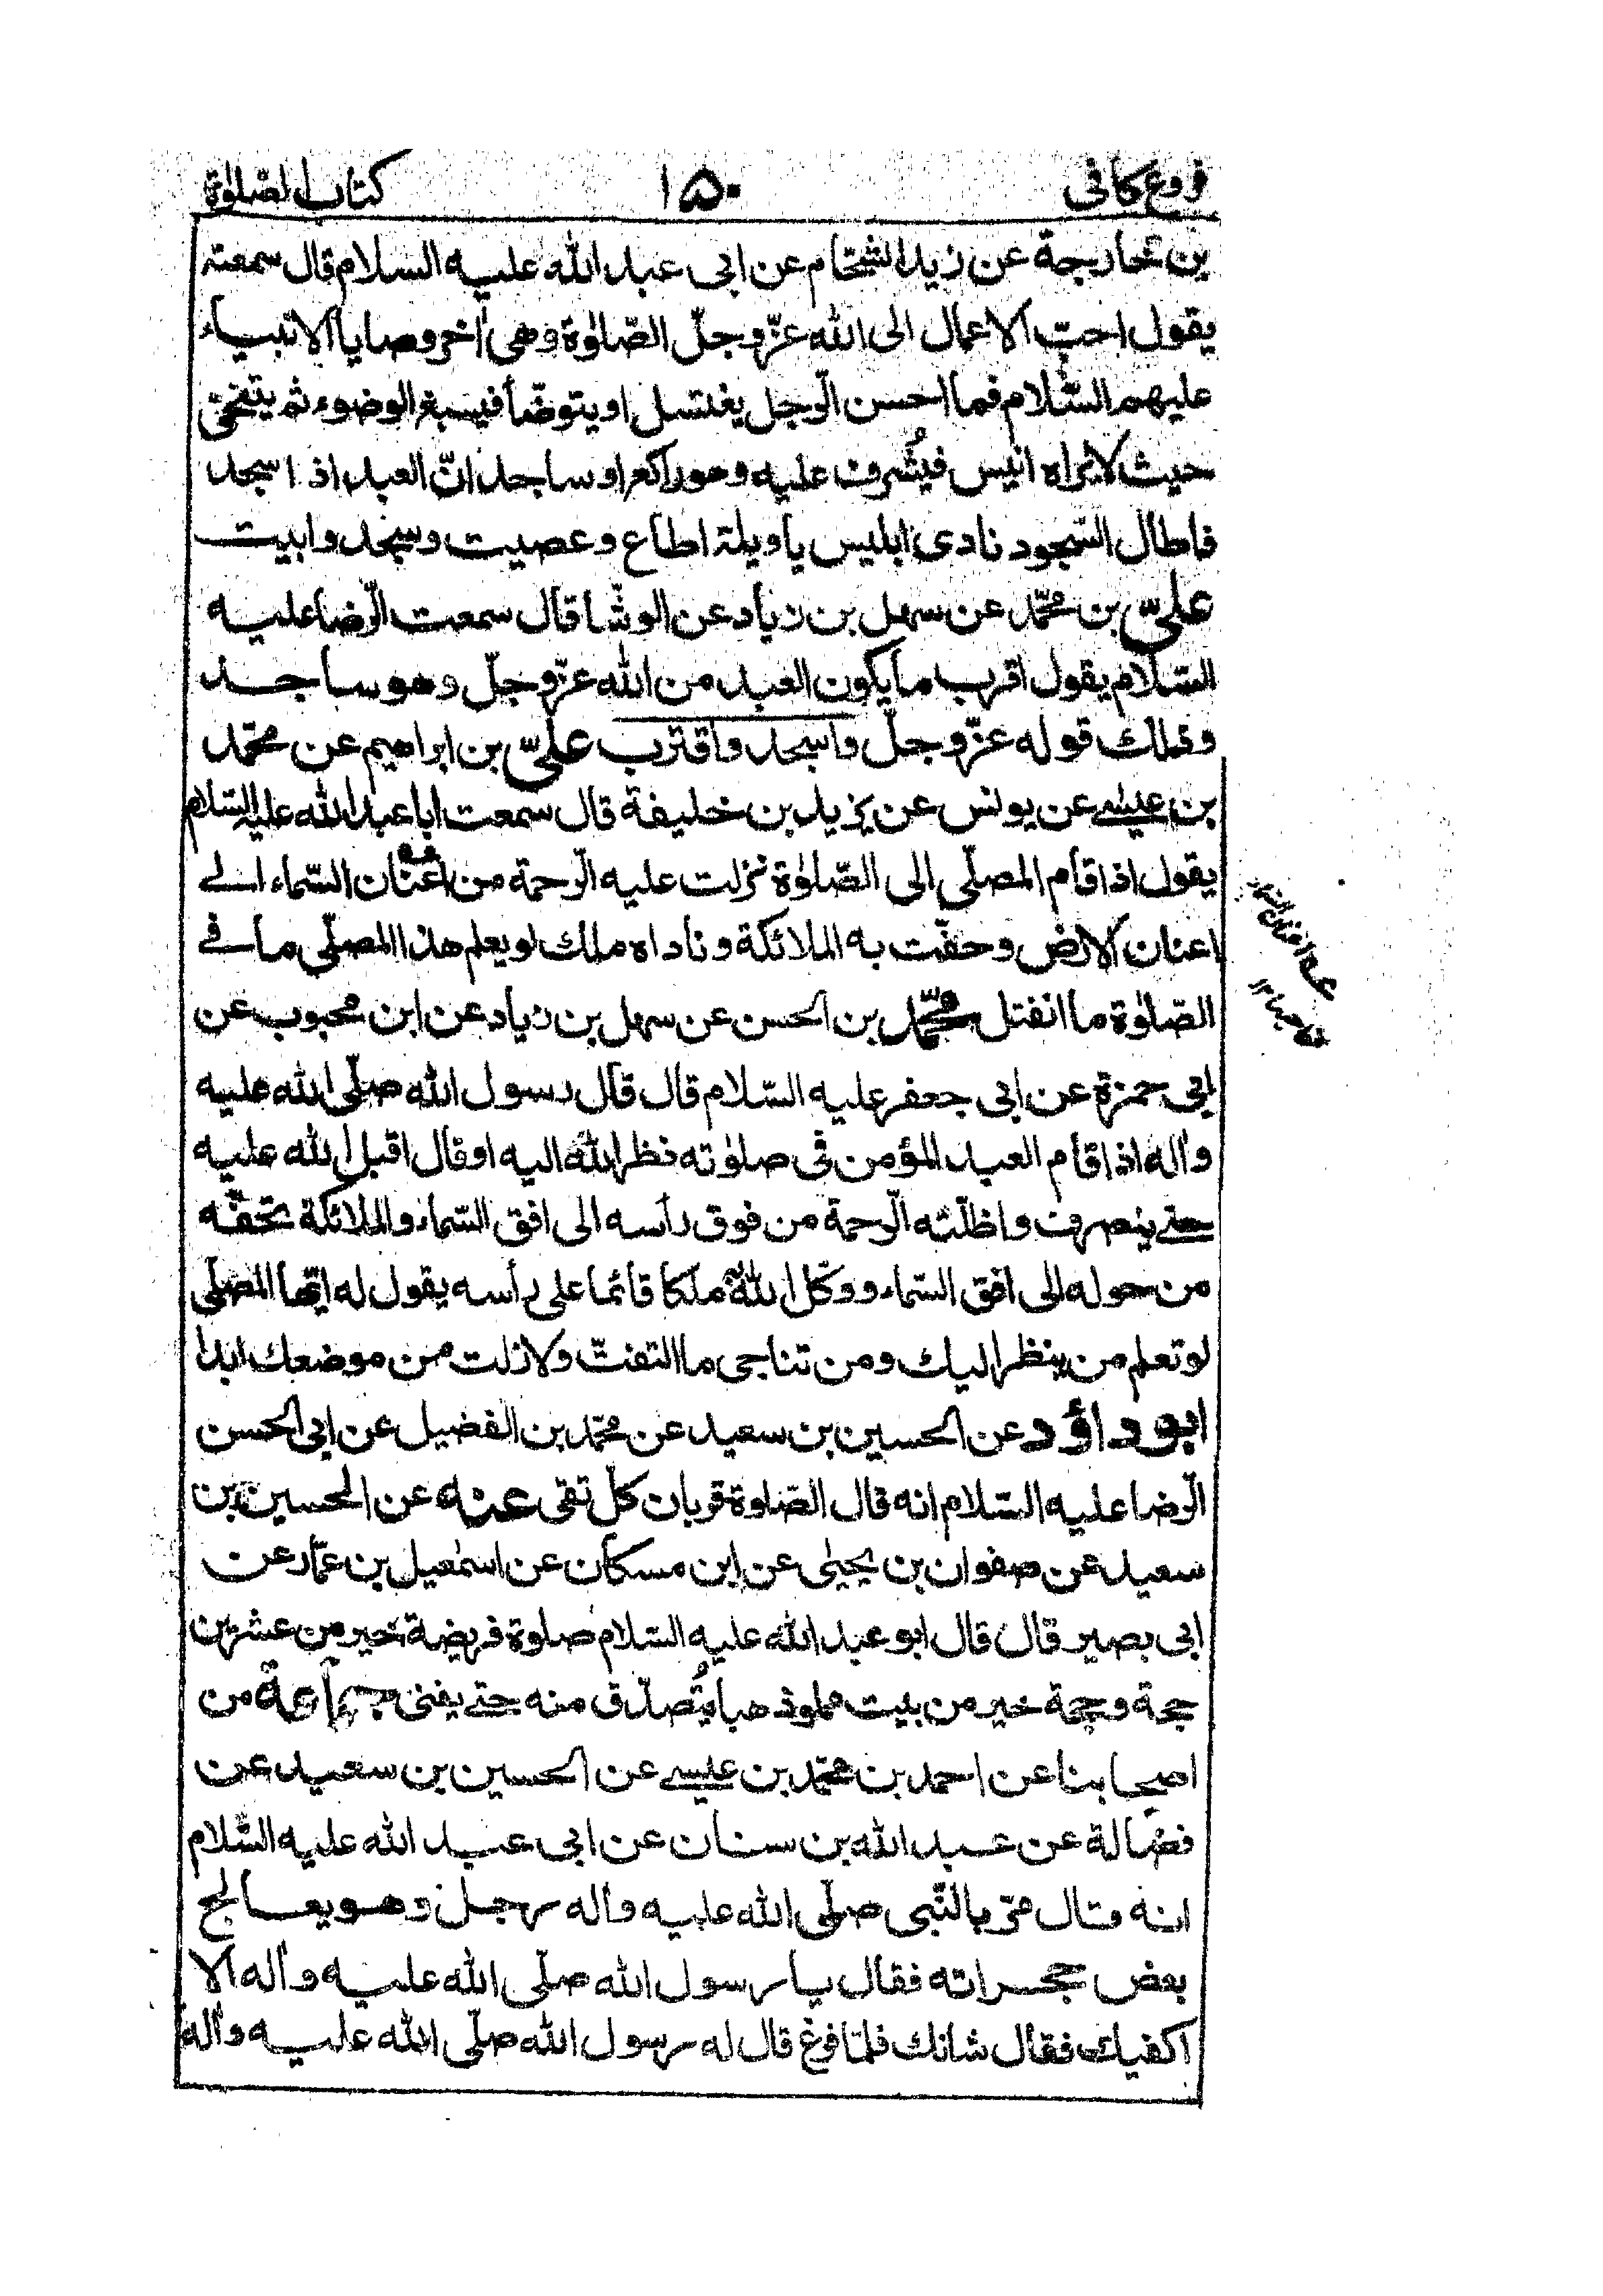 فروع كافى ١٥٠ كتاب الصّلوٰة
بن خارجة عن زيد الشحّام عن ابى عبد الله عليه السلام قال سمعته
يقول احبّ الاعمال الى الله عزّ وجلّ الصّلوٰة وهى اٰخر وصايا الانبياء
عليهم السّلام فما احسن الرّجل يغتسل او يتوضّأ فيسبغ الوضوء ثم يتنحّى
حيث لا يراه انيس فيُشرف عليه وهو راكع او ساجد انّ العبد اذا سجد
فاطال السّجود نادى ابليس يا ويلة اطاع وعصيت وسجد وابيت
علىّ بن محمّد عن سهل بن زياد عن الوشّا قال سمعت الرّضا عليه
السّلام يقول اقرب ما يكون العبد من الله عزّ وجلّ وهو ساجد
وذلك قوله عزّ وجلّ واسجد واقترب علىّ بن ابراهيم عن محمّد
بن عيسى عن يونس عن يزيد بن خليفة قال سمعت ابا عبد الله عليه السّلام
يقول اذا قام المصلّى الى الصّلوٰة نزلت عليه الرّحمة من اعنان السّماء الى
اعنان الارض وحفّت به الملائكة وناداه ملك لو يعلم هذا المصلّى ما فى
الصّلوٰة ما انفتل محمّد بن الحسن عن سهل بن زياد عن ابن محبوب عن
ابى حمزة عن ابى جعفر عليه السّلام قال قال رسول الله صلّى الله عليه
واٰله اذا قام العبد المؤمن فى صلوٰته نظر الله اليه او قال اقبل الله عليه
حتى ينصرف واظلّته الرّحمة من فوق رأسه الى افق السّماء والملائكة تحفّه
من حوله الى افق السّماء ووكّل الله ملكا قائما على رأسه يقول له ايّها المصلّى
لو تعلم من ينظر اليك ومن تناجى ما التفتّ ولا زلت من موضعك ابدا
ابو داؤد عن الحسين بن سعيد عن محمّد بن الفضيل عن ابى الحسن
الرّضا عليه السّلام انه قال الصّلوة قربان كلّ تقى عنه عن الحسين بن
سعيد عن صفوان بن يحيىٰ عن ابن مسكان عن اسمٰعيل بن عمّار عن
ابى بصير قال قال ابو عبد الله عليه السّلام صلوة فريضة خير من عشرين
حجة وحجة خير من بيت مملو ذهبا يُتصدّق منه حتى يفنى جماعة من
اصحابنا عن احمد بن محمّد بن عيسى عن الحسين بن سعيد عن
فضالة عن عبد الله بن سنان عن ابى عبد الله عليه السّلام
انه قال مرّ بالنّبى صلّى الله عليه واٰله رجل وهو يعالج
بعض حجراته فقال يا رسول الله صلّى الله عليه واٰله الا
اكفيك فقال شانك فلمّا فرغ قال له رسول الله صلّى الله عليه واٰله